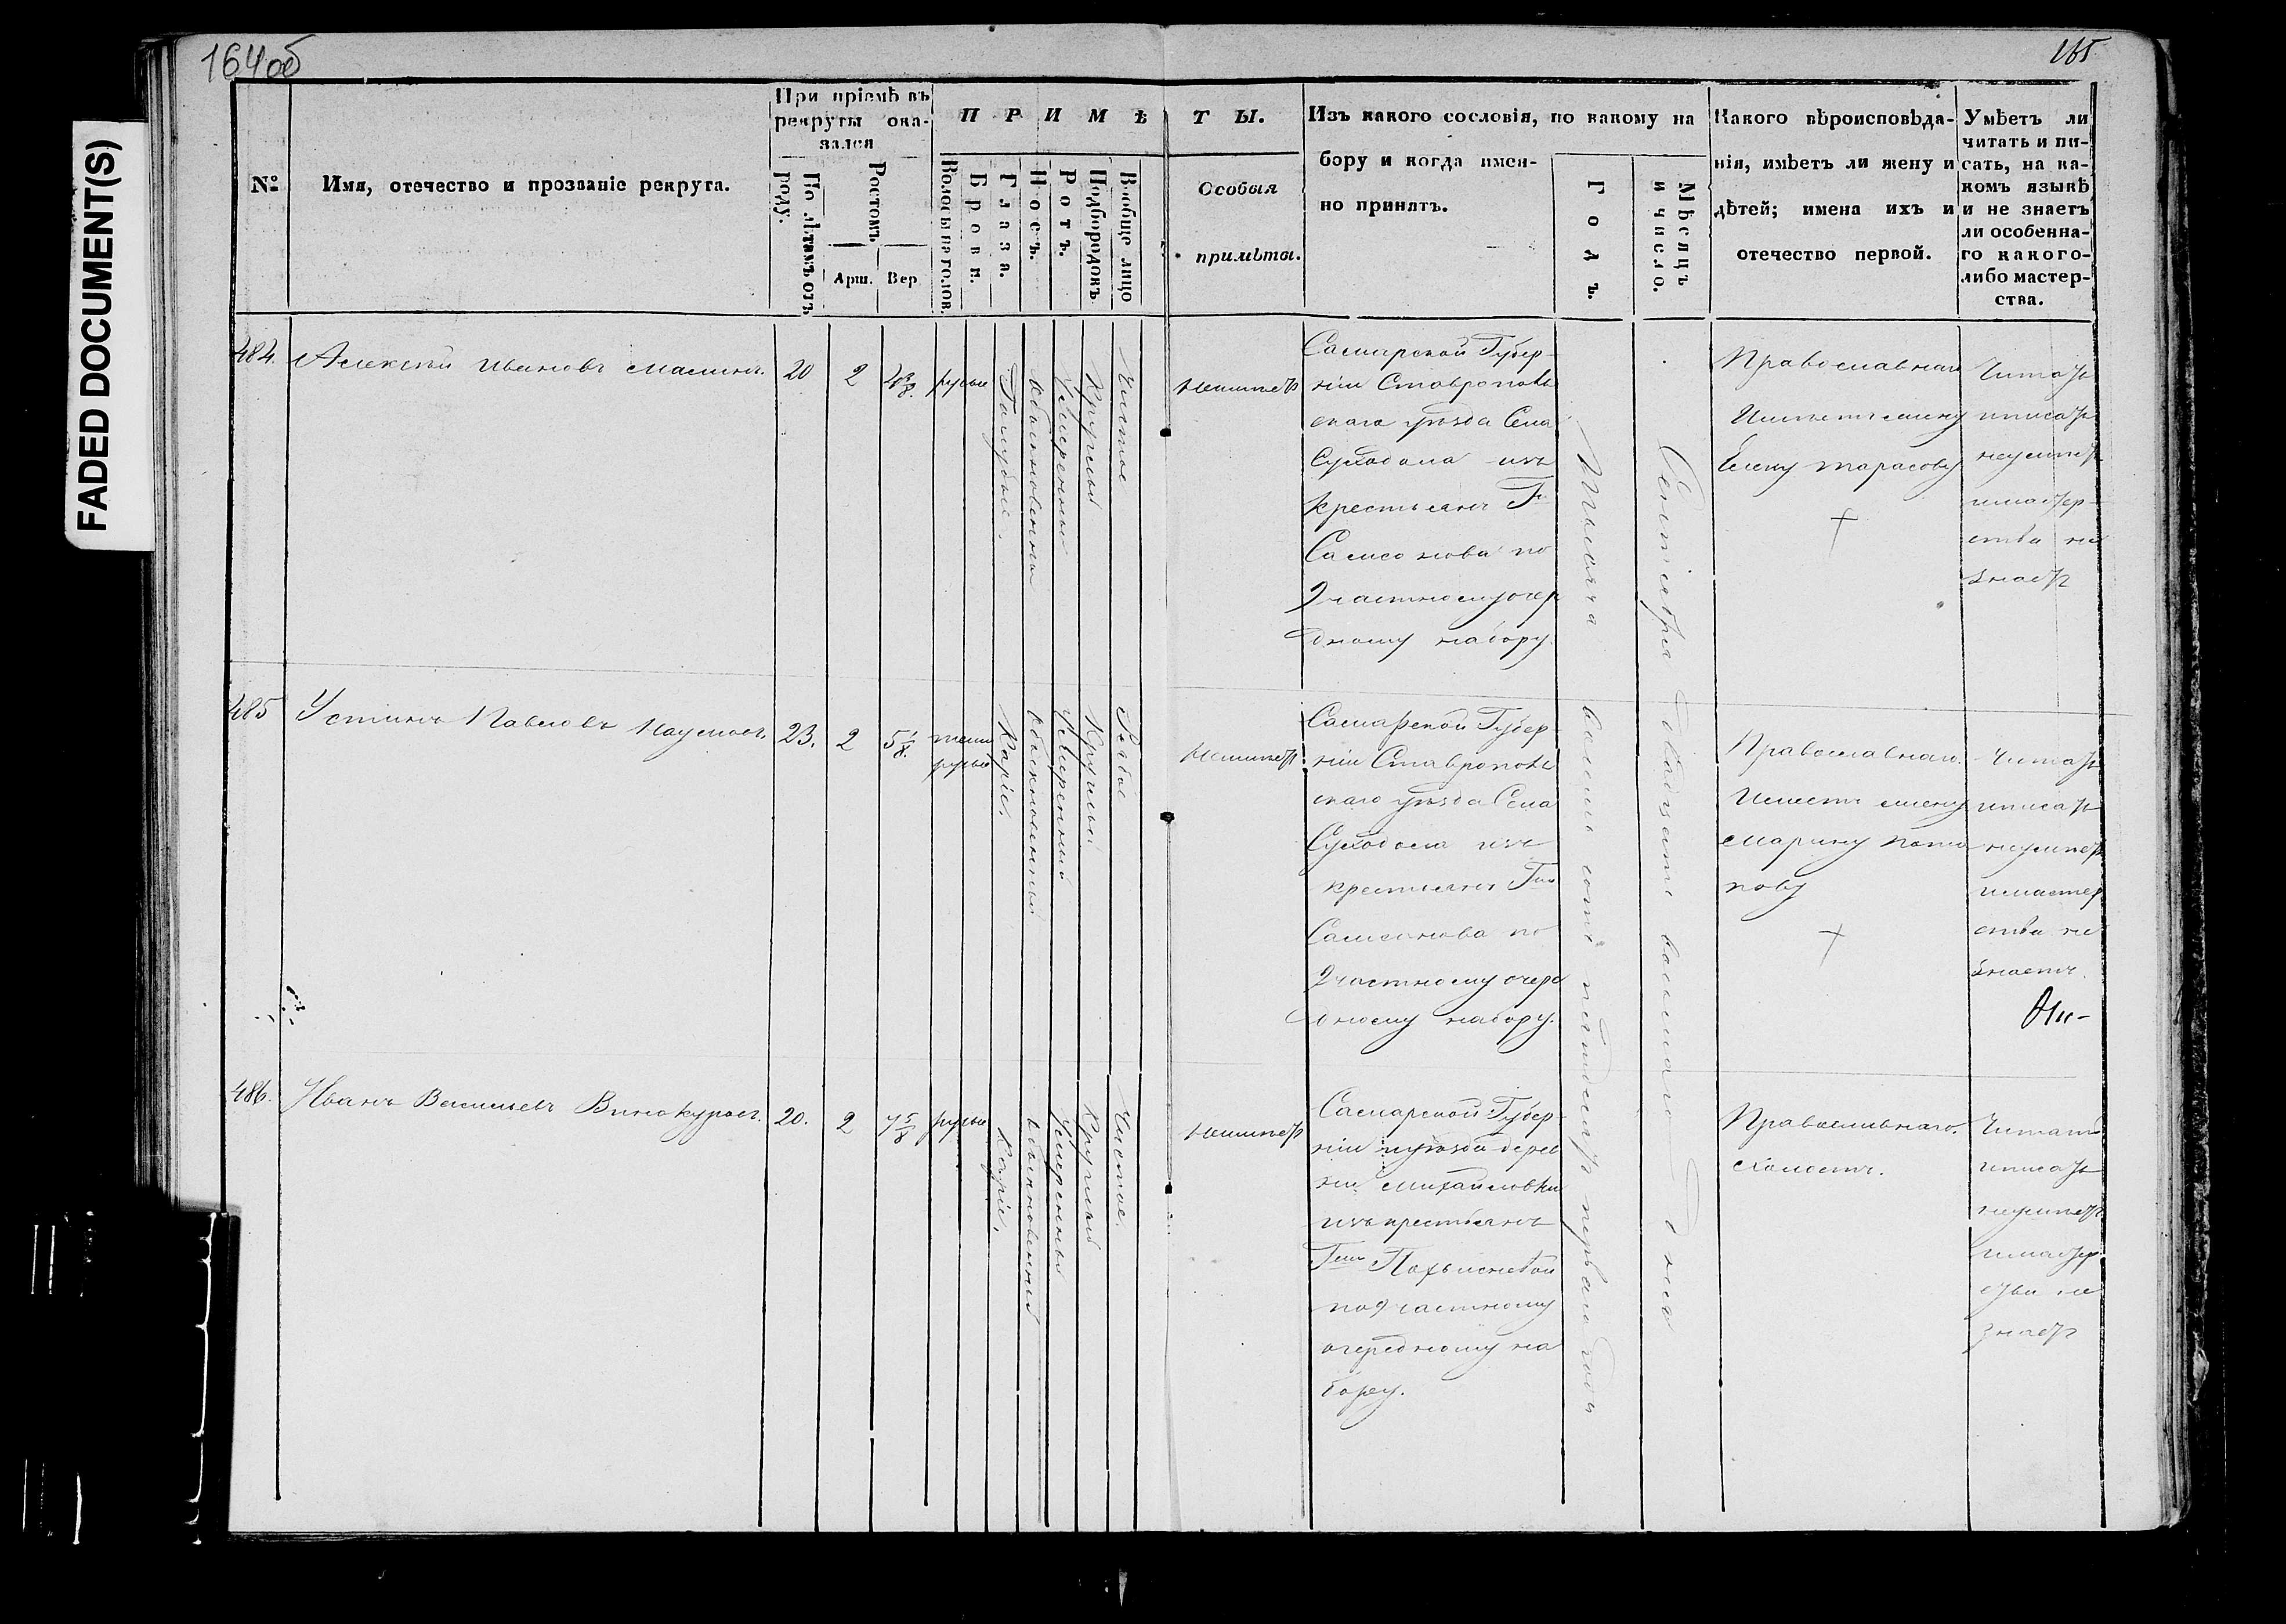 164об
165
FADED DOCUMENT(S)
№
Имя, отечество и прозваніе рекрута.
При пріемѣ въ
рекруты ока-
зался
По лѣтамъ отъ
роду.
Ростомъ.
Арш.
Вер
ПРИМѢТЫ.
Волосы на голов.
Брови.
Глаза.
Носъ.
Ротъ.
Подбородокъ
Вообще лицо
Особыя
примѣты.
Изъ какого сословія, по какому на
бору и когда имен-
но принятъ.
Годъ.
Мѣсяцъ
и число.
Какого вѣроисповѣда-
нія, имѣетъ ли жену и
дѣтей; имена ихъ и
отечество первой.
Умѣетъ ли
читать и пи-
сать, на ка-
комъ языкѣ
и не знаетъ
ли особенна-
го какого-
либо мастер-
ства.
484.
Алексѣй Ивановъ
20
2
русые
Голубые.
обыкновенный
Умеренный
Круглый
Чистое
неимѣетъ
Самарской Губер-
ніи Ставрополь
скаго уѣзда Села
Суходола изъ
крестьянъ Г-
Самсонова по
9 частному очер
едному набору.
Тысяча восемь сотъ пятьдесятъ перваго года
Сентября двадцать восьмаго дня
Православнаго
Имѣетъ жену
Елену Тарасову
Читать
и писать
неумѣетъ
и мастер-
ства не
знаетъ
485
Устинъ Павловъ Наумовъ.
23.
2
5 1/8.
темно
русые
Каріе.
обыкновенный
Умеренный
Круглый
Рябое
неимѣетъ
Самарской Губер-
ніи Ставрополь
скаго уѣзда Села
Суходола изъ
крестьянъ Гна
Самсонова по
9 частному очере
дному набору.
Православнаго.
Имѣетъ жену
Марину Пота
пову
Читать
и писать
неумѣетъ
и мастер
ства не
знаетъ.
486.
Иванъ Васильевъ Винокуровъ.
20.
2
русые
Каріе.
обыкновенный
Умеренный
Круглый
Чистое.
неимѣетъ
Самарской Губер-
ніи и уѣзда дерев
ни Михайловки
изъ крестьянъ
по 9 частному
очередному на
бору.
Православнаго.
Холостъ.
Читать
и писать
неумѣетъ
и мастер
ства не
знаетъ